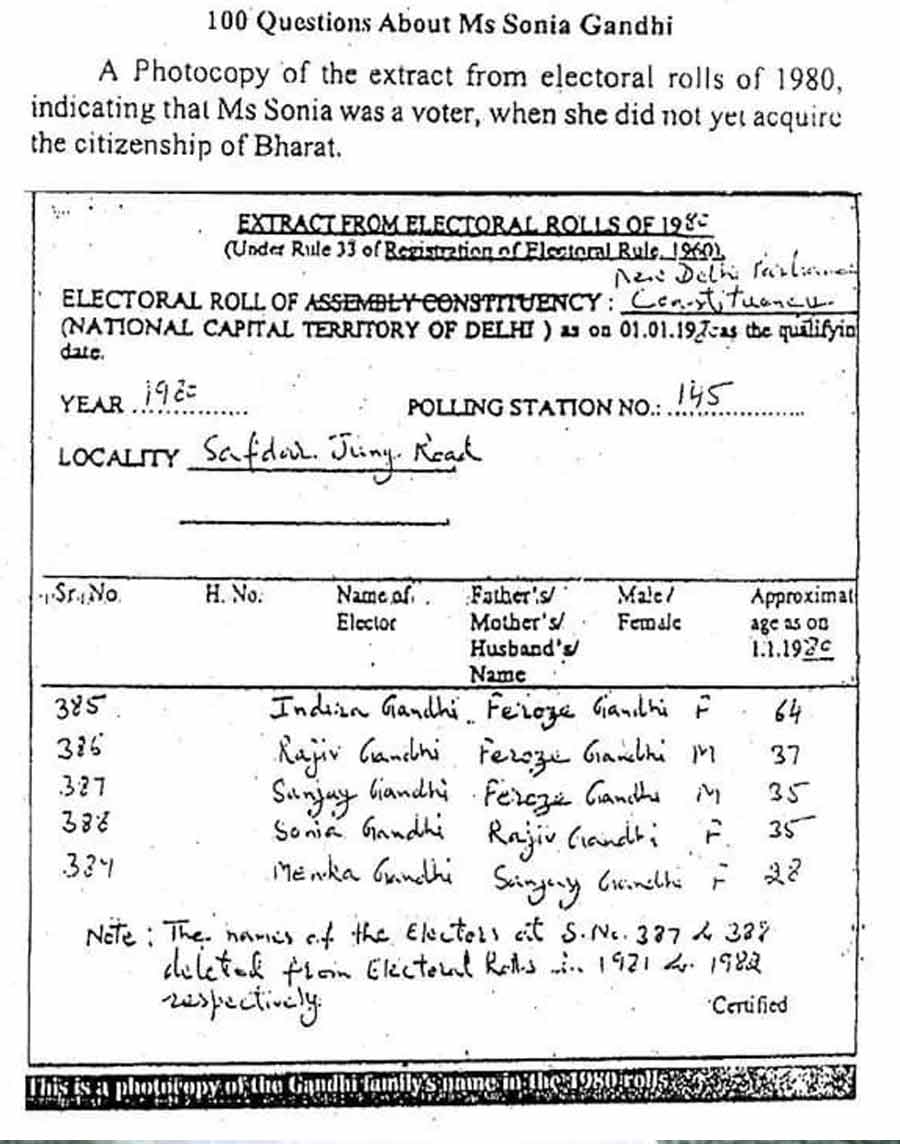 100 Questions About Ms Sonia Gandhi
A Photocopy of the extract from electoral rolls of 1980,
indicating that Ms Sonia was a voter, when she did not yet acquire
the citizenship of Bharat.
EXTRACT FROM ELECTORAL ROLLS OF 1980
(Under Rule 33 of Registration of Electoral Rule, 1960).
New Delhi
ELECTORAL ROLL OF ASSEMBLY CONSTITUENCY : Constituency.
(NATIONAL CAPITAL TERRITORY OF DELHI ) as on 01.01.19 as the qualifyin
date.
YEAR 1980 POLLING STATION NO.: 145
LOCALITY Safdar Jung Road
Sr. No. H. No. Name of Father's/ Male/ Approximat
Elector Mother's/ Female age as on
Husband's/ 1.1.1980
Name
385 Indira Gandhi Feroze Gandhi F 64
386 Rajiv Gandhi Feroze Gandhi M 37
387 Sanjay Gandhi Feroze Gandhi M 35
388 Sonia Gandhi Rajiv Gandhi F 35
389 Menka Gandhi Sanjay Gandhi F 28
Note : The names of the Electors at S.No. 387 & 388
deleted from Electoral Rolls in 1981 & 1982
respectively.
Certified
This is a photocopy of the Gandhi family's name in the 1980 rolls